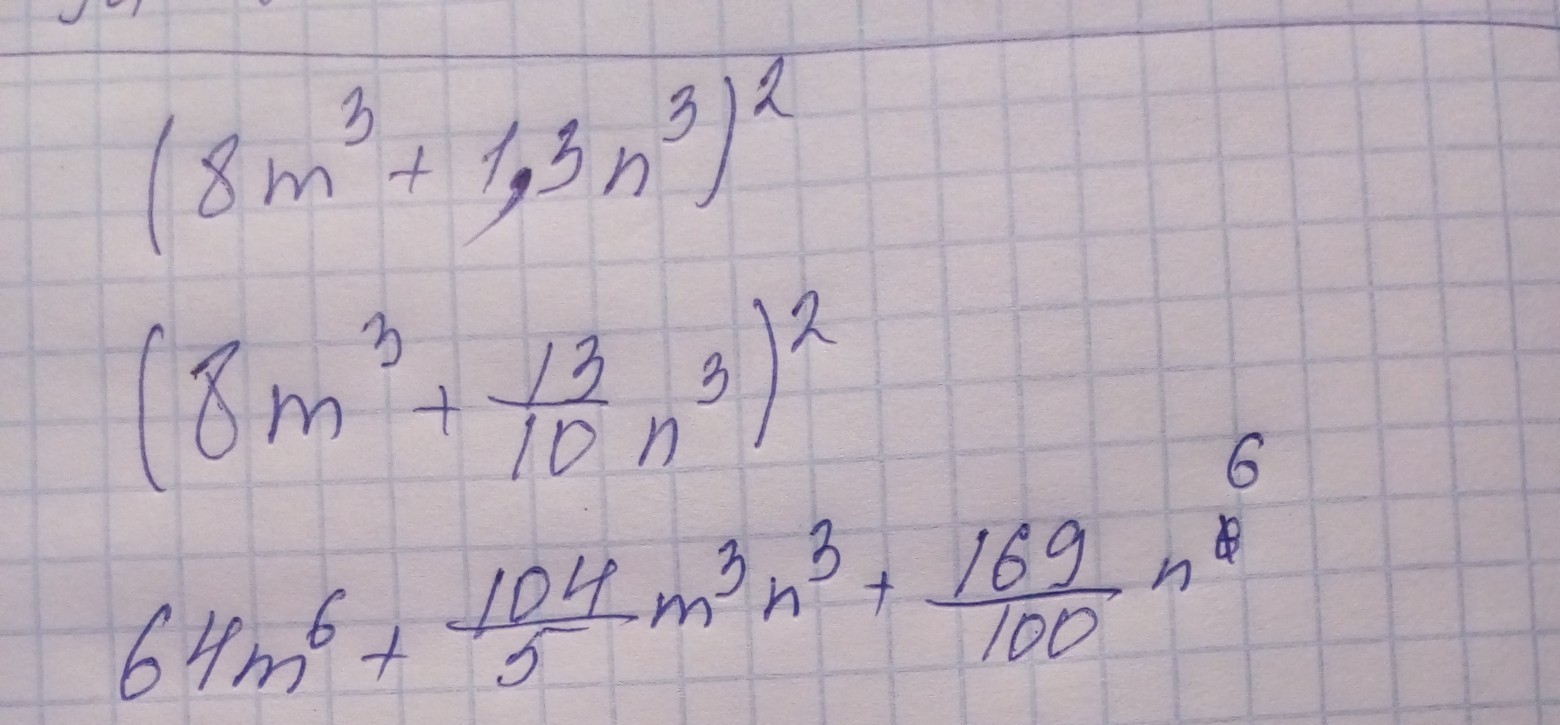 (8m³ + 1,3n³)²
(8m³ + 13/10 n³)²
64m⁶ + 104/5 m³n³ + 169/100 n⁶